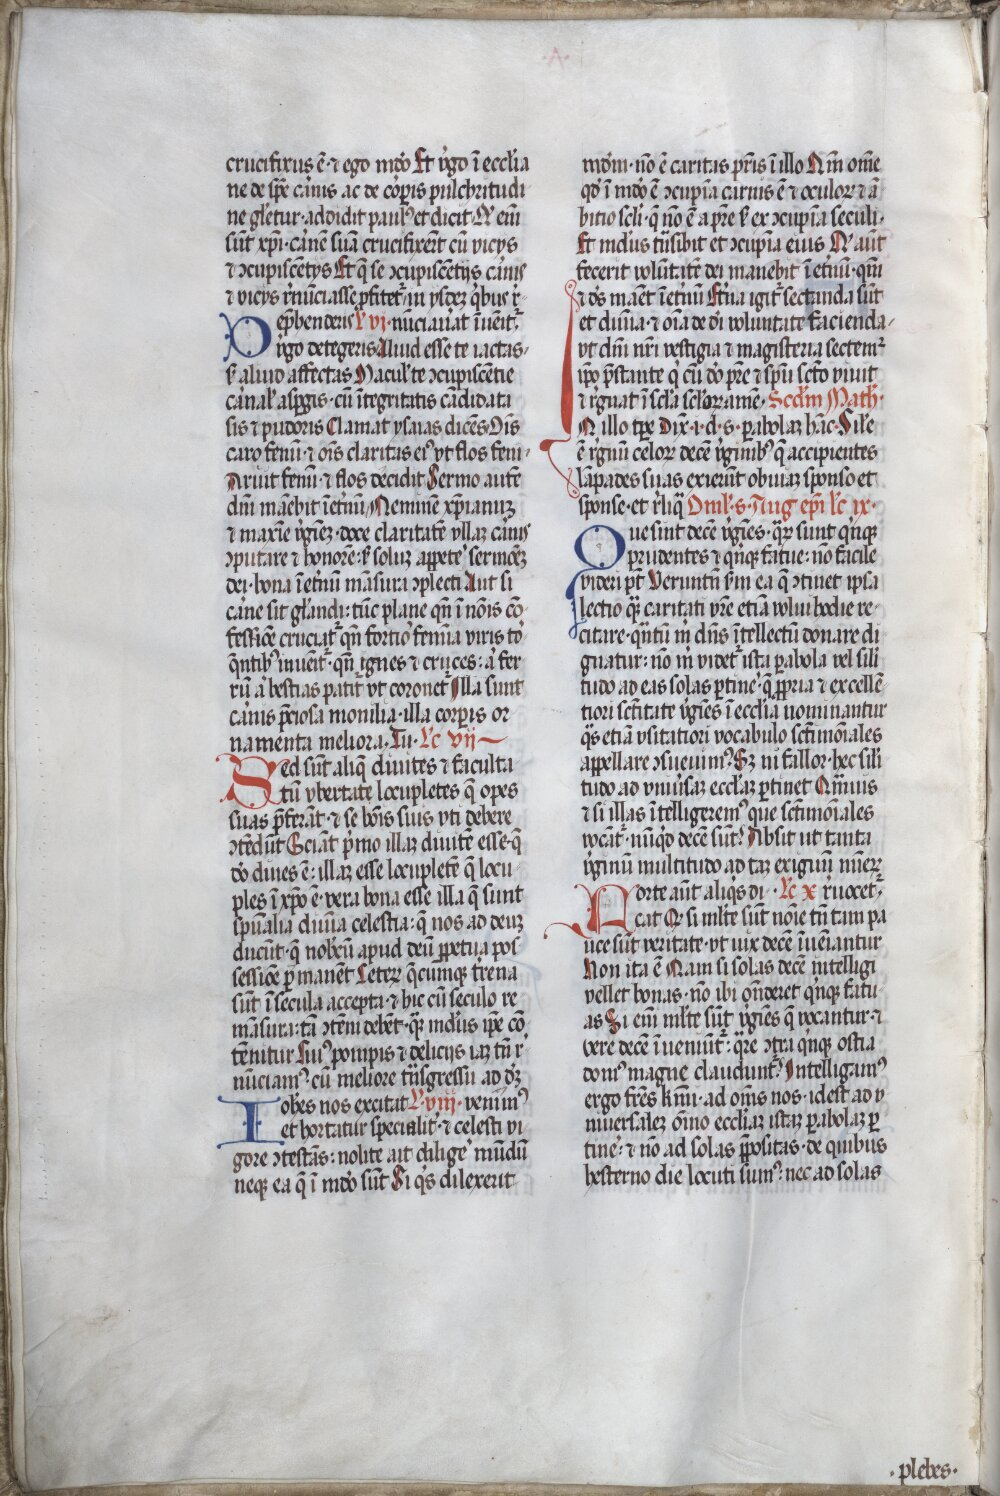 crucifixus ē · ⁊ ego mūdo Et v̄go ī ecclīa
ne de ip̄e carnis ac de corꝑis pulchritudi
ne gl̄etur · addidit paulꝰ et dicit · Qͥ em̄
sūt xp̄i · carnē suā crucifixer̄t cū vicijs
⁊ ꝯcupiscētijs Et q̄ se ꝯcupiscētijs carnis
⁊ vicijs r̄nūciasse ꝓfitet᷑ · in ysdeꝫ qͥbus r̄
ep̄henderis L̄ vj · nūciauāt īuēit᷑
v̄go detegeris Aliud esse te iactas ·
⁊ aliud affectas Maculᷤte ꝯcupiscētie
carnalᷤ asꝑgis · cū ītegritatis cādidata
sis ⁊ pudoris Clamat ysaias dicēs Oīs
caro fenū · ⁊ oīs claritas eiꝰ vt flos feni ·
Aruit fenū · ⁊ flos decidit Sermo autē
dn̄i māebit ī et̄nū Neminē xp̄ianuꝫ
⁊ maxīe v̄gīeꝫ · decꝫ claritatē vllaꝫ carnis
ꝯputare ⁊ honorē : ⁊ soluꝫ appeteᷤ sermōeꝫ
dei · bona ī et̄nū māsura ꝯplecti Aut si
carne sit gl̄andi : tūc plane qn̄ ī noīs cō-
fessiōe cruciat᷑ qn̄ fortioᷤ femīa viris to᷑
q̄ntibꝰ inuēit᷑ · qn̄ ignes ⁊ cruces : a fer
rū a bestias patit᷑ vt coronet᷑ Illa sunt
carnis p̄ciosa monilia · illa corꝑis or
namenta meliora · Tu · Lc̄ vij
Sed sūt aliq̄ diuites ⁊ faculta
tū vbertate locupletes q̄ opes
suas p̄ferāt · ⁊ se bōis suis vti debere
ꝯtēdūt Sciāt p̄mo illaꝫ diuitē esse · q̄
ī dō diues ē : illaꝫ esse locupletē q̄ locu
ples ī xp̄o ē · vera bona esse illa q̄ sunt
sp̄ualia diuīa celestia : q̄ nos ad deuꝫ
ducūt · q̄ nobᷤcū apud deū ꝑpetua pos
sessiōe ꝑmanēt Ceteꝝ q̄cumqꝫ t̄rena
sūt ī seculo accepta · ⁊ hic cū seculo re
māsura : tā ꝯtēni debēt · qᷓꝫ mūdus ip̄e cō
tēnitur Huiꝰ pompis ⁊ delicijs iaꝫ tūc r̄
nūciamꝰ · cū meliore tn̄sgressu ad dn̄ꝫ
Iohēs nos excitat L̄ · viij · venimꝰ
et hortatur specialit̄ · ⁊ celesti vi
gore ꝯtestās : nolite ait diligeᷤ mūdū
neqꝫ ea q̄ ī mūdo sūt Si qͥs dilexerit
mūdū · nō ē caritas pr̄is ī illo Qm̄ om̄e
qd̄ ī mūdo ē ꝯcupīa carnis ē ⁊ oculoꝝ ⁊ ā
bitio sc̄li · q̄ nō ē a pr̄e s̄ ex ꝯcupīa seculi ·
Et mūdus tn̄sibit et ꝯcupīa eius Qͥ aūt
fecerit volūtatē dei manebit ī et̄nū · qm̄
⁊ ds̄ maēt ī et̄nū Et̄na igit᷑ sectanda sūt
et diuīa · ⁊ oīa de dei voluntate facienda ·
vt dn̄i nr̄i vestigia ⁊ magisteria sectem᷑
ip̄o p̄stante q̄ cū dō pr̄e ⁊ sp̄u sct̄o viuit
⁊ r̄gnat ī scl̄a scl̄oꝝ amē · Scd̄m Math̄ ·
N illo tꝑe Dix · i · d · s · ꝑabolaꝫ hāc · Sil̄e
ē r̄gnū celoꝝ decē v̄ginibꝰ q̄ accipientes
lāpades suas exierūt obuiaꝫ sponso et
sponse · et r̄liq̄ Oml̄ · s · Aug ep̄i lc̄ ix ·
Que sint decē v̄gīes · qᷓꝝ sunt qͥnqꝫ
prudentes ⁊ qͥnqꝫ fatue : nō facile
videri pt̄ Verūtn̄ s̄m ea q̄ ꝯtinet ipsa
lectio qᷓꝫ caritati vr̄e etiā volui hodie re-
citare · q̄ntū m̄ dn̄s ītellectū donare di
gnatur : nō m̄ videt᷑ ista ꝑabola vel sil̄i
tudo ad eas solas ꝑtineᷤ · q̄ ꝓpria ⁊ excellē
tiori sc̄titate v̄gīes ī ecclīa nominantur
qᷓs etiā vsitatiori vocabulo sc̄timōiales
appellare ꝯsueuimꝰ · Sꝫ ni fallor · hec sil̄i
tudo ad vniūsaꝫ eccl̄iaꝫ ꝑtinet Qm̄uis
⁊ si illas ītelligeremꝰ que sc̄timōiales
vocāt᷑ · nūqͥd decē sūt? Absit ut tanta
v̄ginū multitudo ad tam exiguū nūerꝝ
Forte aūt aliqͥs di · Lc̄ x r̄uocet᷑
cat Qꝫ si ml̄te sūt noīe tn̄ tam pa
uce sūt veritate · vt uix decē īueīantur
Non ita ē Nam si solas decē intelligi
vellet bonas · nō ibi on̄deret qͥnqꝫ fatu-
as Si em̄ ml̄te sūt v̄gīes q̄ vocantur · ⁊
vere decē īueniūt᷑ : qᷓre ꝯtra qͥnqꝫ ostia
domꝰ magne claudunt᷑? Intelligamꝰ
ergo fr̄es k̄mi · ad om̄s nos · idest ad v
niuersaleꝫ om̄ino eccl̄iaꝫ istaꝫ ꝑabolaꝫ ꝑ
tineᷤ · ⁊ nō ad solas p̄positas · de quibus
hesterno die locuti sumꝰ : nec ad solas
· plebes ·